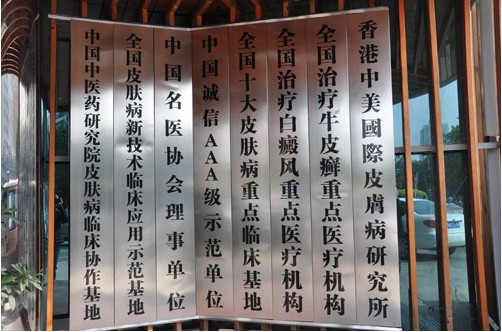 香港中美國際皮膚病研究所
全国治疗牛皮癣重点医疗机构
全国治疗白癜风重点医疗机构
全国十大皮肤病重点临床基地
中国诚信AAA级示范单位
中国名医协会理事单位
全国皮肤病新技术临床应用示范基地
中国中医药研究院皮肤病临床协作基地